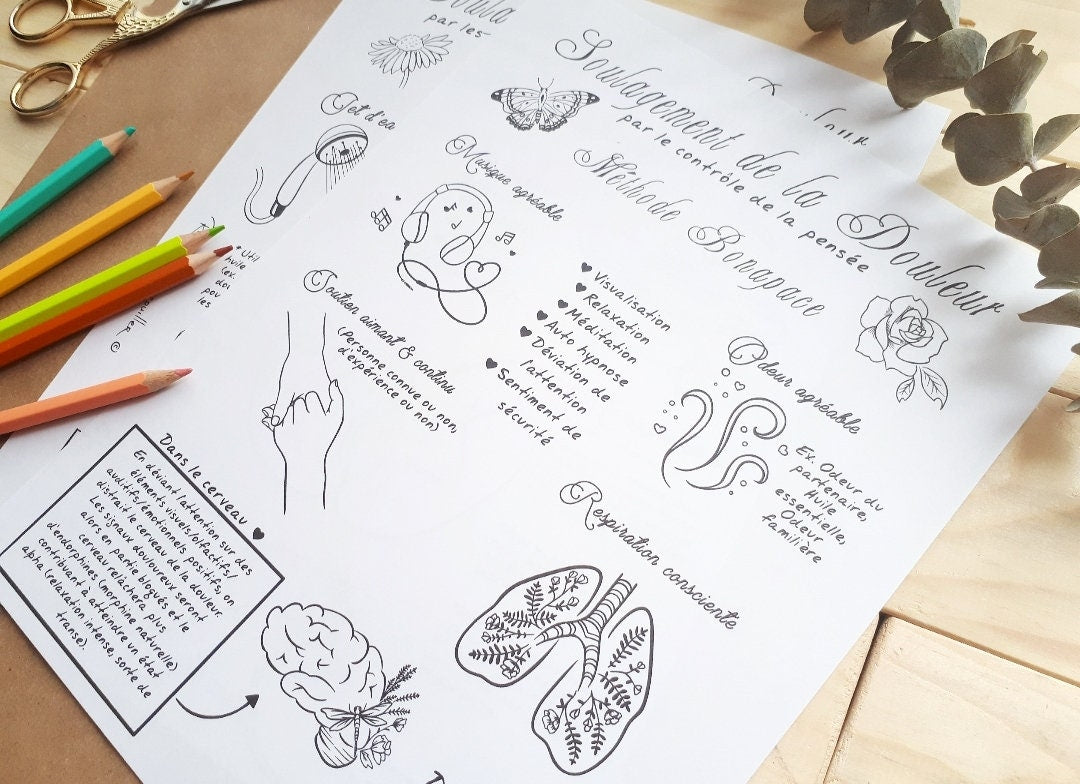 Soulagement de la Douleur
par le contrôle de la pensée
Méthode Bonapace
Musique agréable
Soutien aimant & continu
(Personne connue ou non,
d'expérience ou non)
Visualisation
Relaxation
Méditation
Auto hypnose
Déviation de
l'attention
Sentiment de
sécurité
Odeur agréable
Ex. Odeur du
partenaire,
Huile
essentielle,
Odeur
familière
Respiration consciente
Dans le cerveau
En déviant l'attention sur des
éléments visuels/olfactifs/
auditifs/émotionnels positifs, on
distrait le cerveau de la douleur.
Les signaux douloureux seront
alors en partie bloqués et le
cerveau relâchera plus
d'endorphines (morphine naturelle)
contribuant à atteindre un état
alpha (relaxation intense, sorte de
transe).
par les
Jet d'ea
* Util
huile
(ex.
pou
les